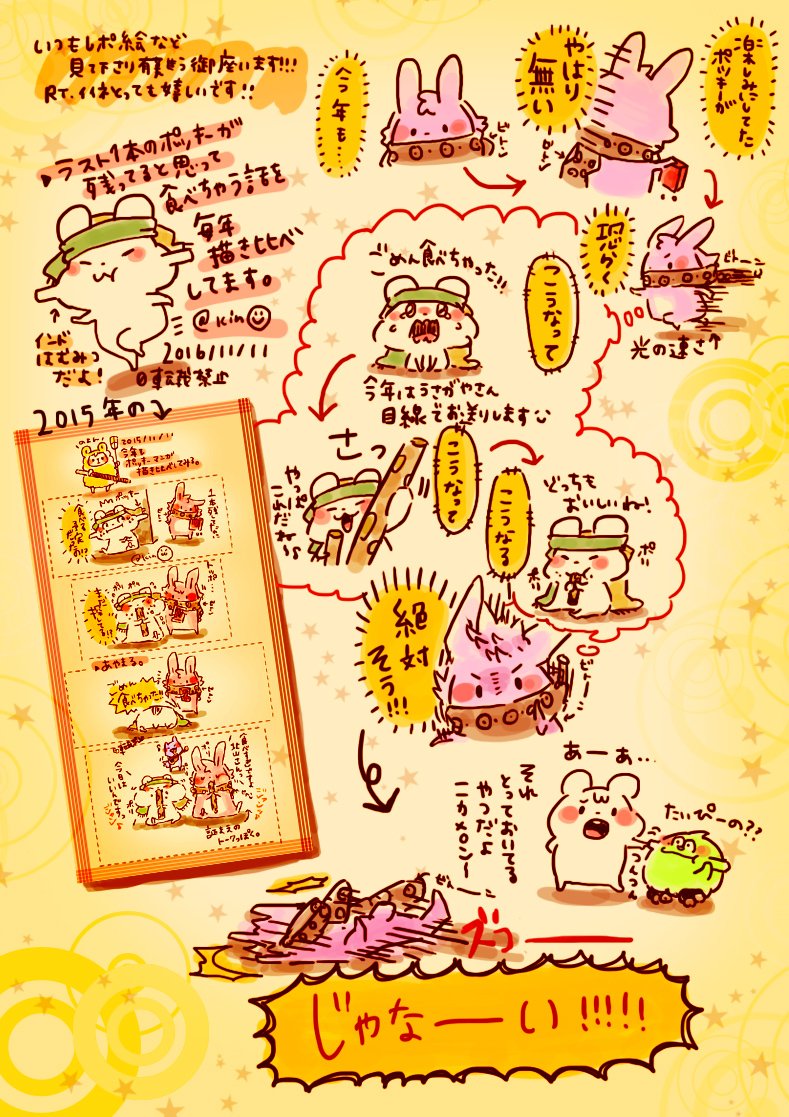 いつもレポ絵など
見て下さり有難う御座います!!!
RT.イイネとっても嬉しいです!!
▶ラスト1本のポッキーが
残ってると思って
食べちゃう話を
毎年
描き比べ
してます。
@kin
2016/11/11
転載禁止
インド
はむみつ
だよ!
楽しみにしてた
ポッキーが
やはり
無い
ビトン
今年も…
ビトン
恐らく
ビトーン
光の速さ↑
こうなって
ごめん食べちゃった!!
今年はうさがやさん
目線でお送りします
こうなって
さっ
やっぱ
これだね〜
こうなる
どっちも
おいしいね!
ポリ
ポリ
絶対
そう!!!
ビトーン
2015年の
2015/11/11
今年も
ポッキーマンガ
描き比べしてみる。
ごめん
食べちゃった!!
▶あやまる。
ポリ
今日は
いいんですっ
トークっぽく。
あーあ…
それ
とっておいてる
やつだよ
ニカメロン〜
たいぴーの??
つんつん
ズコ――
じゃなーい!!!!!